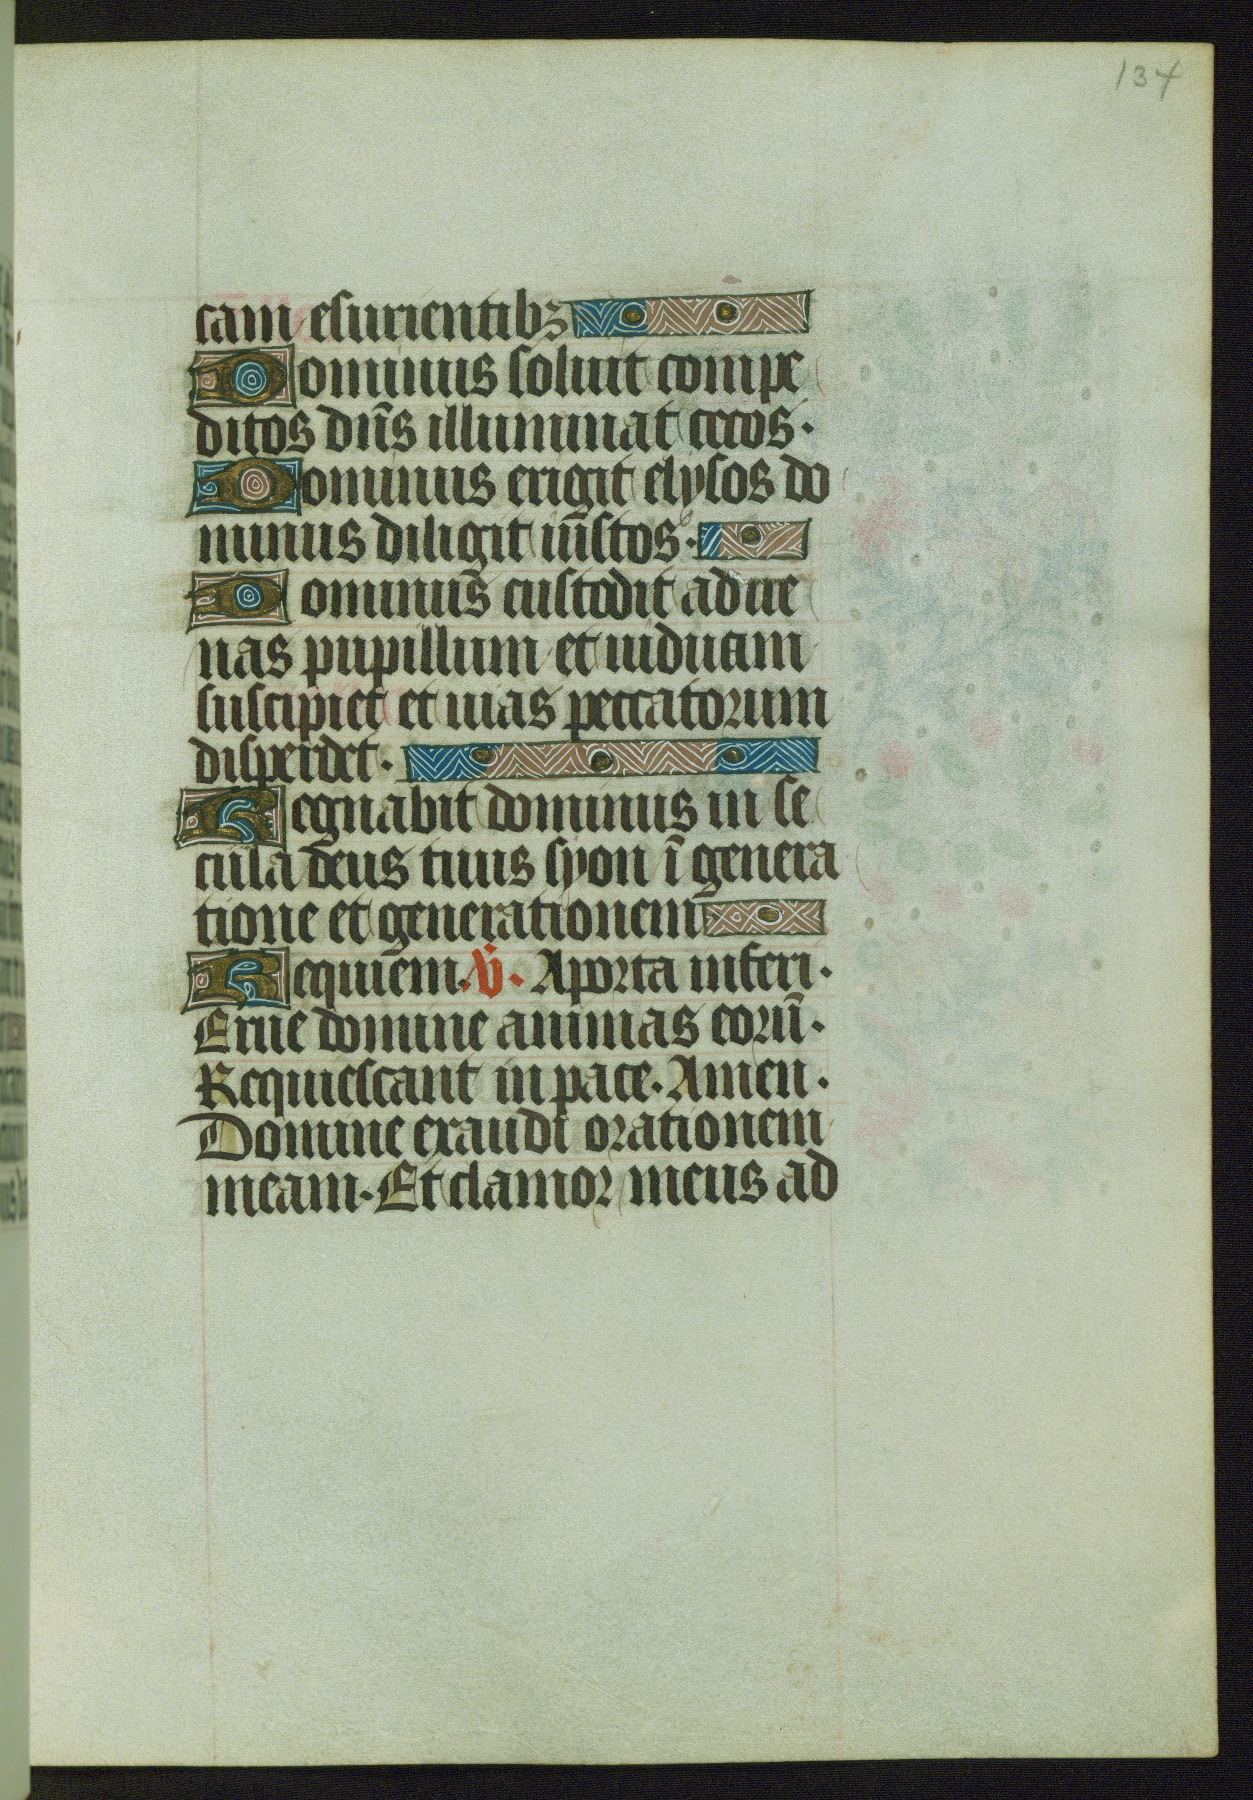 134
cam esurientibꝫ
Dominus soluit compe
ditos dn̄s illuminat cecos.
Dominus erigit elysos do
minus diligit iustos.
Dominus custodit adue
nas pupillum et uiduam
suscipiet et uias peccatorum
disperdet.
Regnabit dominus in se
cula deus tuus syon ī genera
tione et generationem
Requiem. V̄. A porta inferi.
Erue domine animas eorū.
Requiescant in pace. Amen.
Domine exaudi orationem
meam. Et clamor meus ad